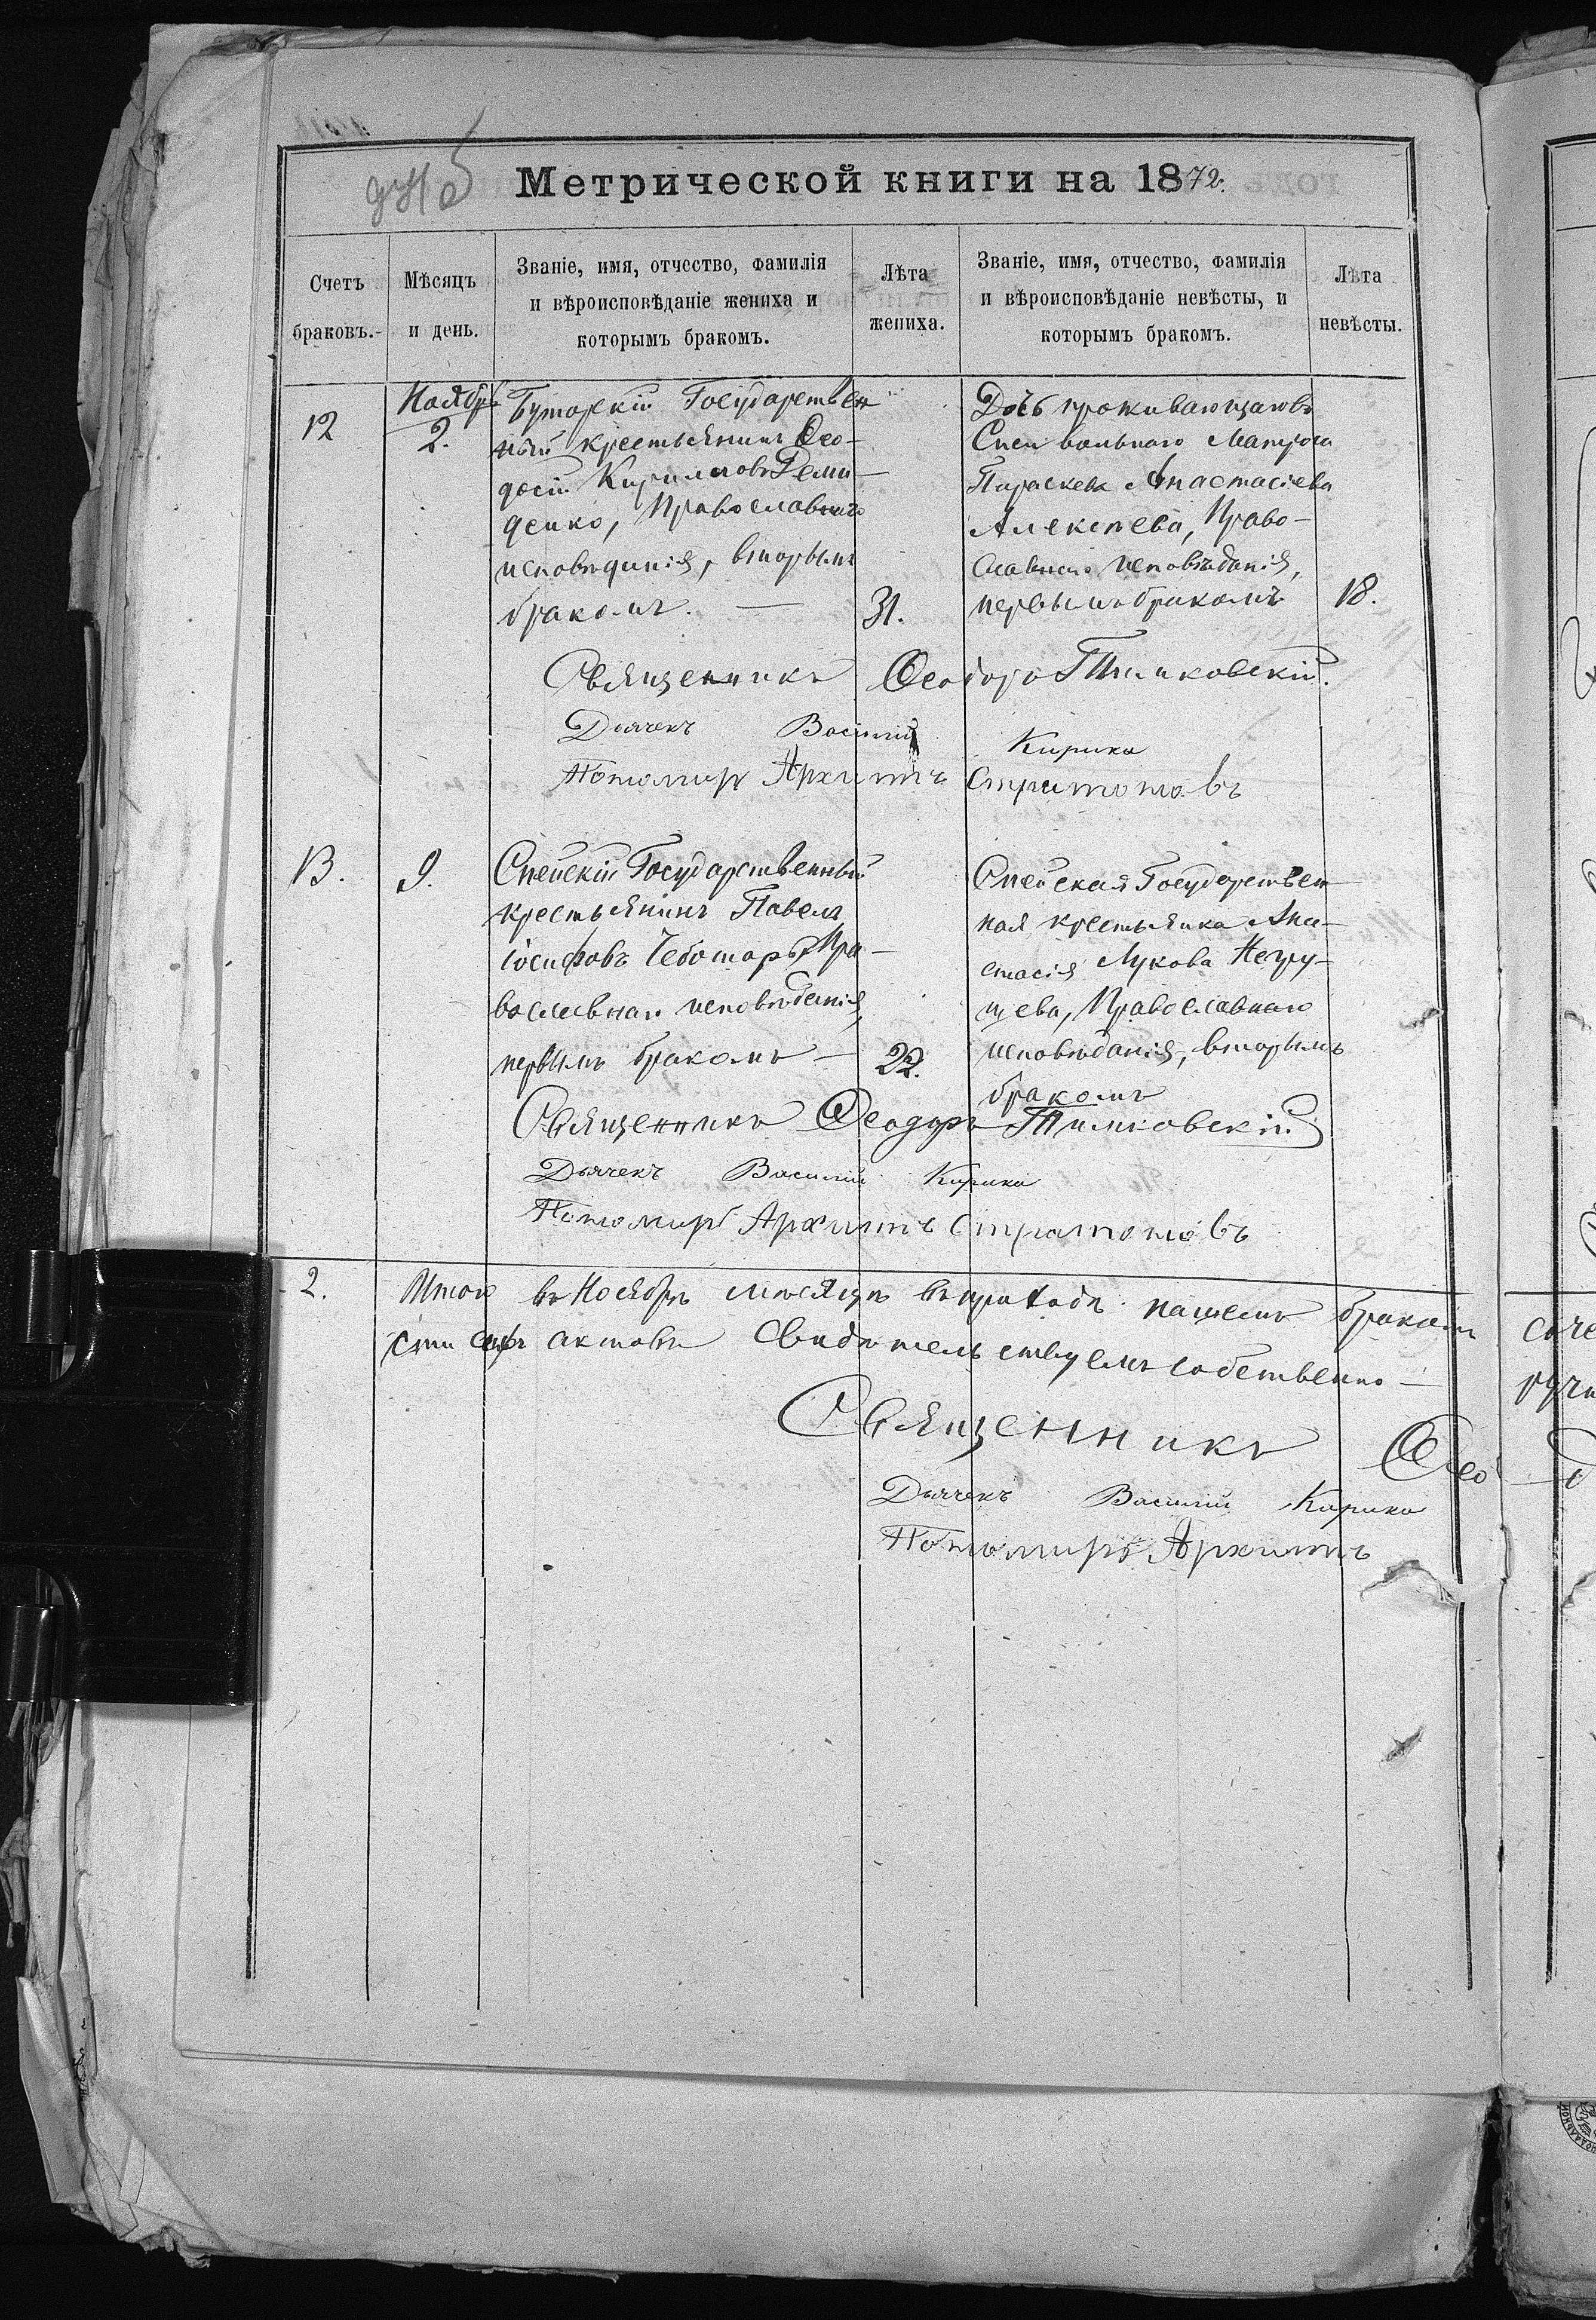 Метрической книги на 1872.
Счетъ браковъ.
Мѣсяцъ и день.
Званіе, имя, отчество, фамилія
и вѣроисповѣданіе жениха и
которымъ бракомъ.
Лѣта жениха.
Званіе, имя, отчество, фамилія
и вѣроисповѣданіе невѣсты, и
которымъ бракомъ.
Лѣта невѣсты.
12
Ноябрь
2.
Буторскій Государствен
ный крестьянинъ Ѳео-
досій Кирилловъ Деми-
денко, Православнаго
исповѣданія, вторымъ
бракомъ. —
31.
Дочь проживающаго въ
Спеи вольнаго Матроса
Параскева Анастасіева
Алексѣева, Право-
славнаго исповѣданія,
первымъ бракомъ
18.
Священникъ Ѳеодоръ Тимковскій.
Дьячекъ Василій Кирика
Пономарь Архиппъ Стратоновъ
13.
9.
Спейскій Государственный
крестьянинъ Павелъ
Іосифовъ Чеботарь, Пра-
вославнаго исповѣданія,
первымъ бракомъ —
22.
Спейская Государствен
ная крестьянка Ана-
стасія Лукова Негру-
цева, Православнаго
исповѣданія, вторымъ
бракомъ
Священникъ Ѳеодоръ Тимковскій
Дьячекъ Василій Кирика
Пономарь Архиппъ Стратоновъ
2.
Итого въ Ноябрѣ мѣсяцѣ въ приходѣ нашемъ бракомъ
сихъ актовъ свидѣтельствуемъ собственно-
Священникъ Ѳео
Дьячекъ Василій Кирика
Пономарь Архиппъ
соче
ручн